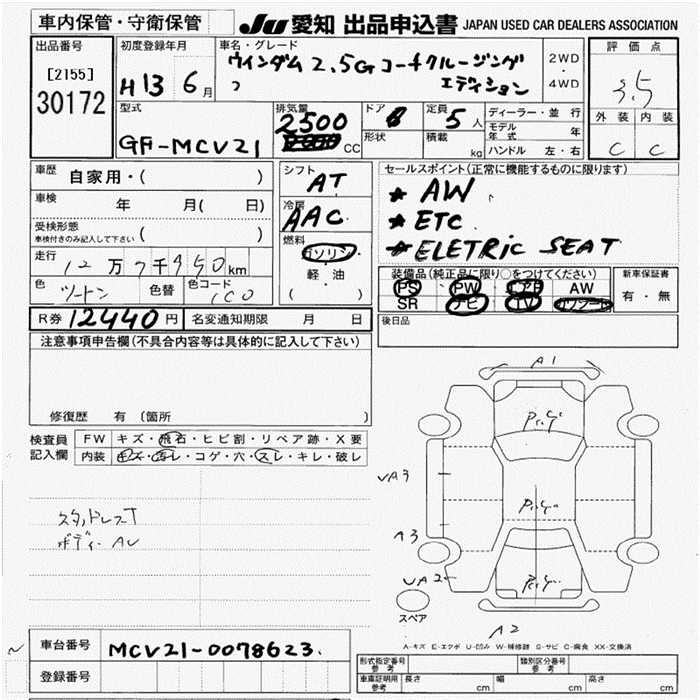 車内保管・守衛保管
JU 愛知 出品申込書 JAPAN USED CAR DEALERS ASSOCIATION
出品番号
[2155]
30172
初度登録年月
H13 6月
車名・グレード
ウインダム 2.5G コーチクルージング
エディション
2WD
・
4WD
評価点
3.5
外装 内装
C C
型式
GF-MCV21
排気量
2500
CC
ドア
形状
定員 5人
積載 kg
ディーラー・並行
モデル年式 年
ハンドル 左・右
車歴
自家用・( )
車検 年 月( 日)
受検形態
車検付きのみ記入して下さい ( )
走行
12万7千450km
色 ツートン 色替 色コード 1C0
シフト
AT
冷房
AAC
燃料
ガソリン
軽・油
( )
セールスポイント(正常に機能するものに限ります)
* AW
* ETC
* ELETRIC SEAT
装備品(純正品に限り○をつけてください)
PS PW エアB AW
SR ナビ TV カワシート
新車保証書
有・無
R券 12440円 名変通知期限 月 日
後日品
注意事項申告欄(不具合内容等は具体的に記入して下さい)
修復歴 有 (箇所 )
検査員
記入欄
FW キズ・飛石・ヒビ割・リペア跡・X要
内装 キズ・汚レ・コゲ・穴・スレ・キレ・破レ
スタッドレスT
A1
UA3
A3
UA2
A2
スペア
A-キズ E-エクボ U-凹み W-補修跡 S-サビ C-腐食 XX-交換済
車台番号 MCV21-0078623.
登録番号
形式指定番号 参考
類別区分番号 参考
車庫証明用 参考 長さ cm 幅 cm 高さ cm